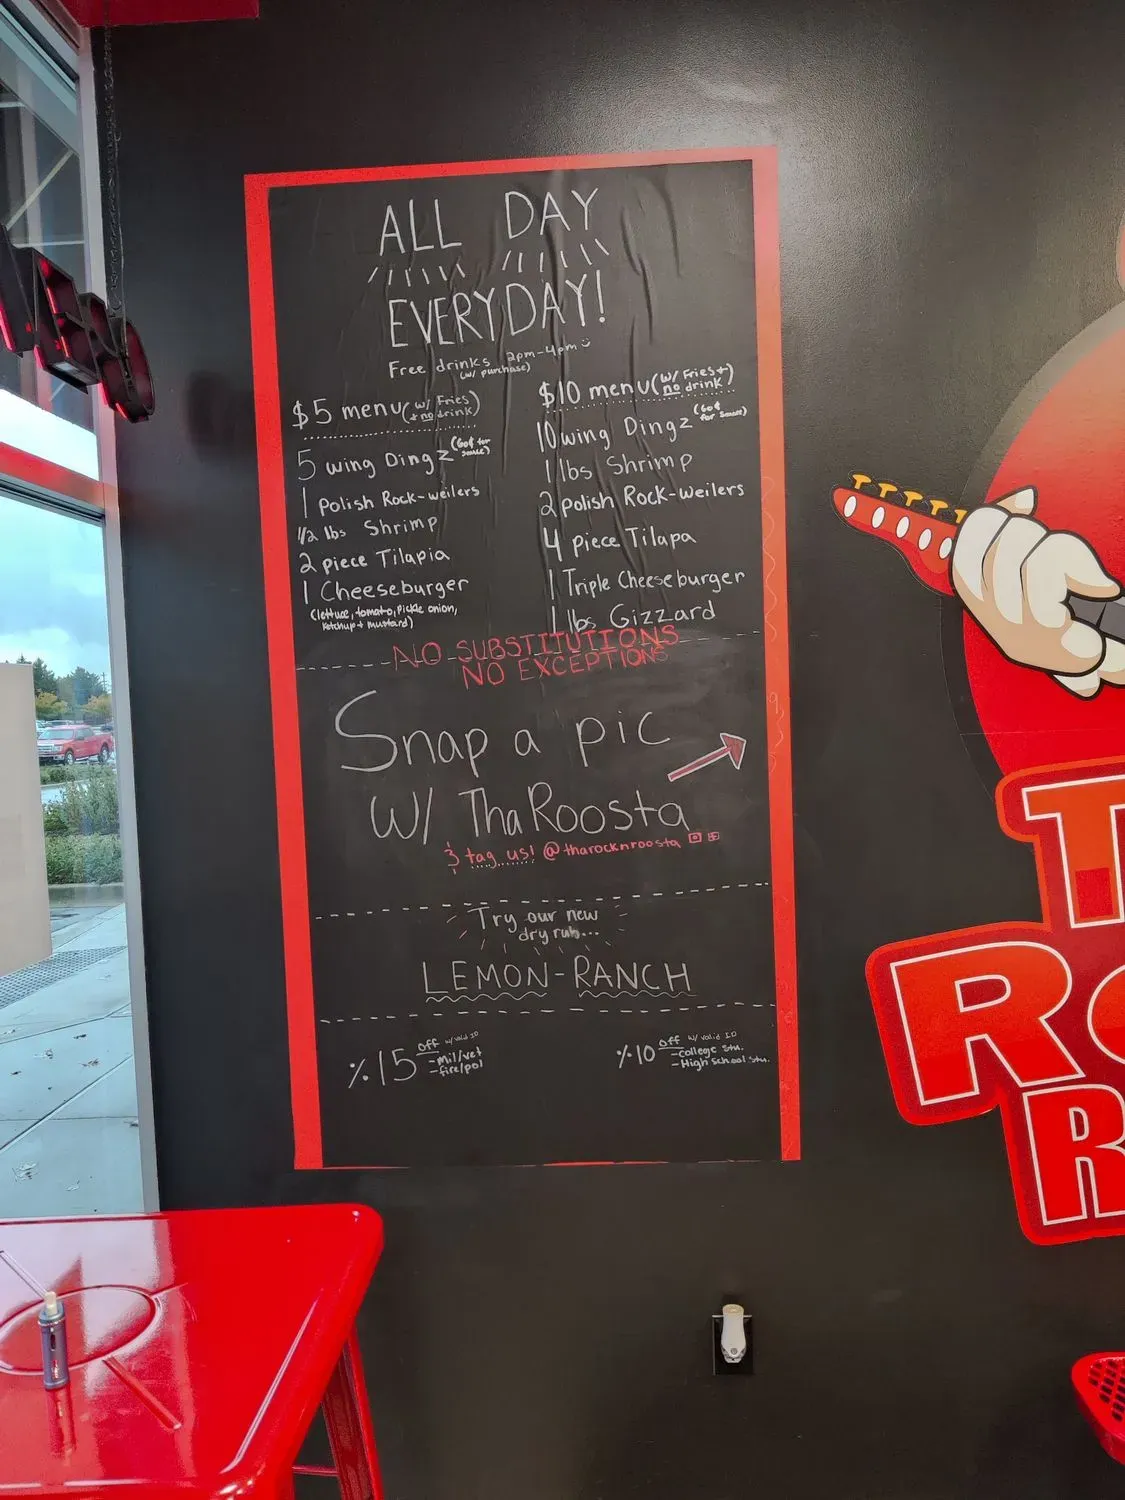 ALL DAY
EVERYDAY!
Free drinks 2pm-4pm
(w/ purchase)
$5 menu (w/ Fries + no drink)
5 wing Dingz (60¢ for sauce)
1 Polish Rock-weilers
1/2 lbs Shrimp
2 piece Tilapia
1 Cheeseburger
(lettuce, tomato, pickle onion,
ketchup + mustard)
$10 menu (w/ Fries + no drink!)
10 wing Dingz (60¢ for sauce)
1 lbs Shrimp
2 polish Rock-Weilers
4 piece Tilapa
1 Triple Cheeseburger
1 lbs Gizzard
NO SUBSTITUTIONS
NO EXCEPTIONS
Snap a pic
w/ Tha Roosta
& tag us! @tharocknroosta
Try our new
dry rub...
LEMON-RANCH
%15 off w/ valid ID
-mil/vet
-fire/pol
%10 off w/ valid ID
-college stu.
-High School stu.
T
R
R